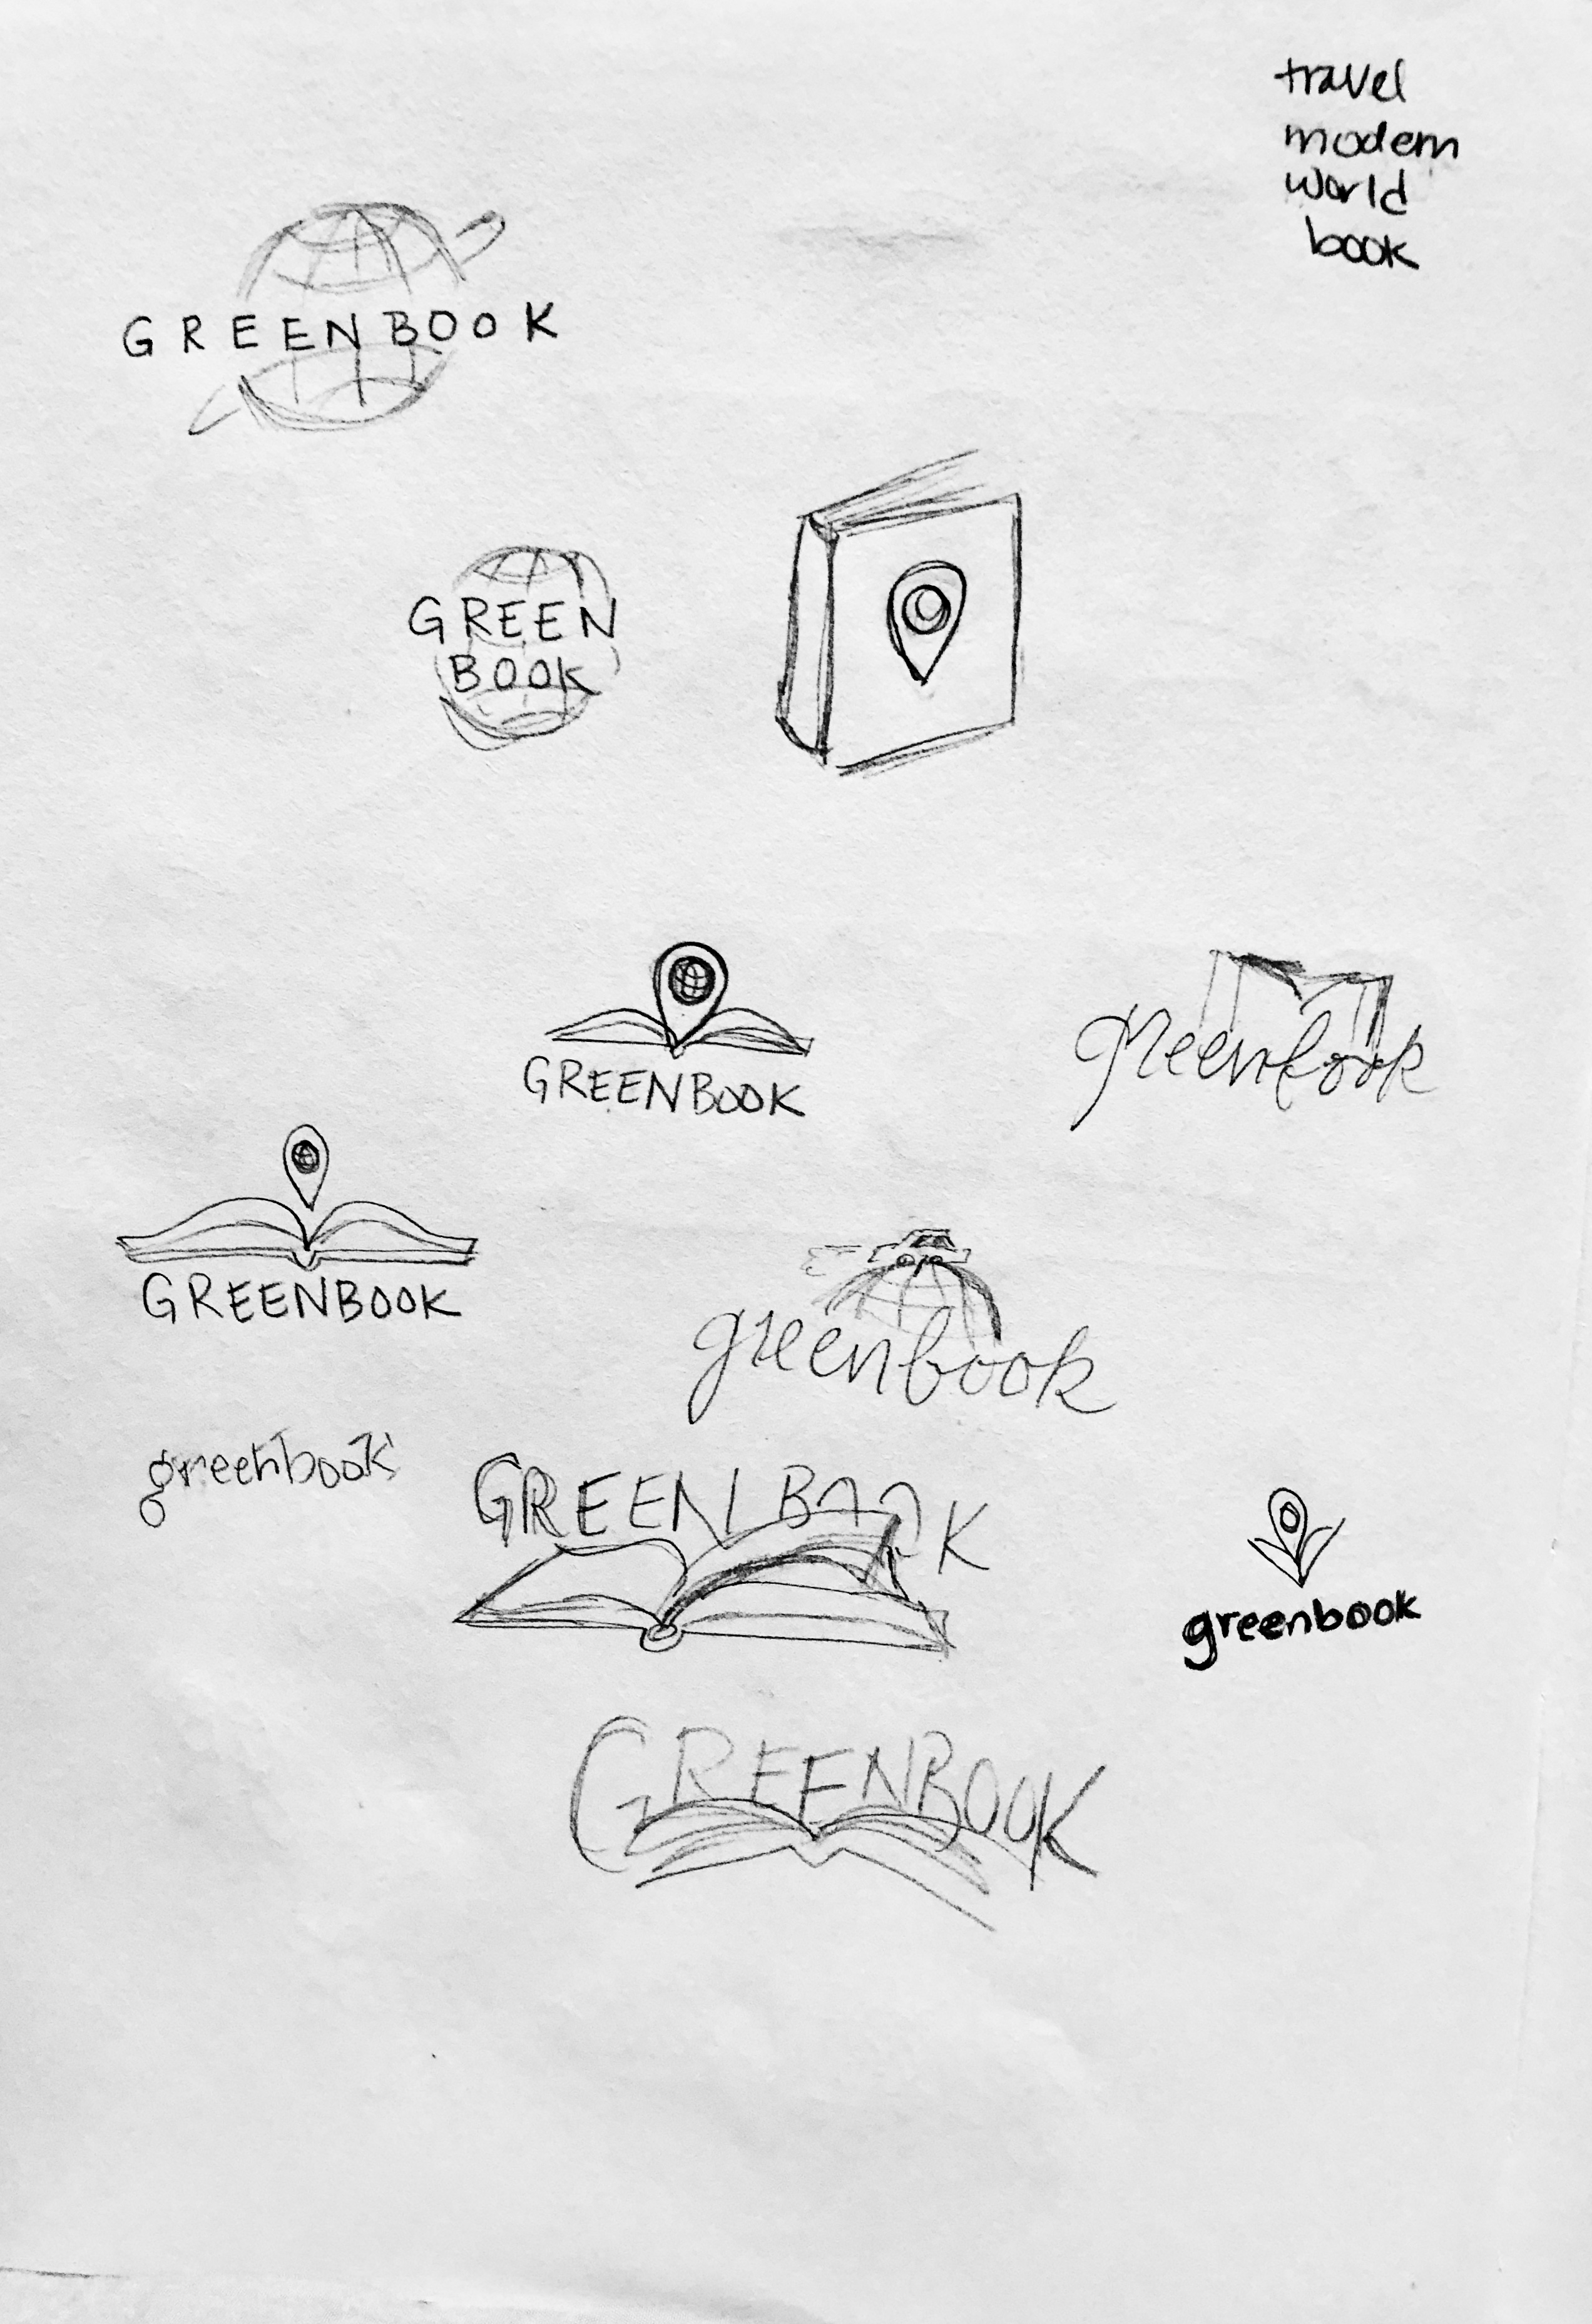 travel
modern
world
book
GREENBOOK
GREEN
BOOK
GREENBOOK
greenbook
GREENBOOK
greenbook
greenbook
GREENBOOK
greenbook
GREENBOOK